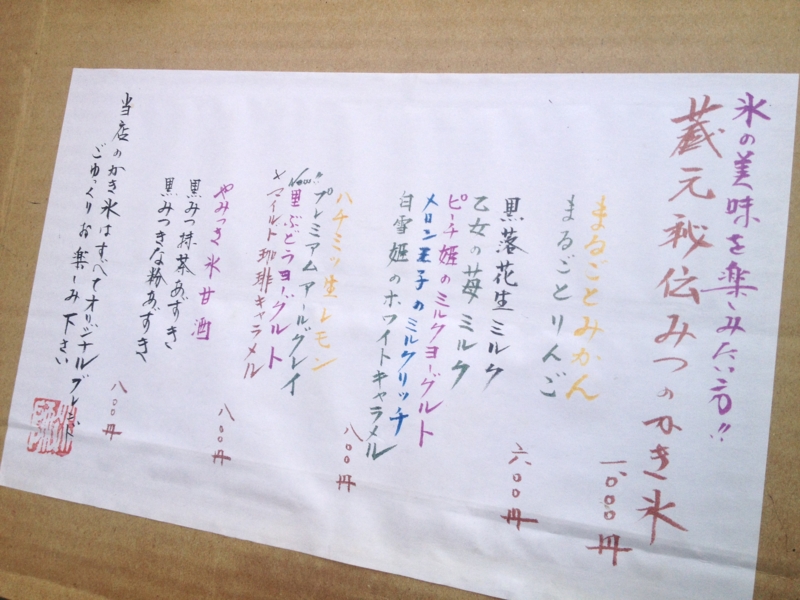 氷の美味を楽しみたい方!!
蔵元秘伝みつのかき氷
まるごとみかん
まるごとりんご
一、〇〇〇円
黒落花生ミルク
乙女の苺ミルク
六〇〇円
ピーチ姫のミルクヨーグルト
メロン王子のミルクリッチ
白雪姫のホワイトキャラメル
ハチミツ生レモン
八〇〇円
プレミアムアールグレイ
New!!
黒ぶとうヨーグルト
マイルド珈琲キャラメル
やみつき氷甘酒
八〇〇円
黒みつ抹茶あずき
黒みつきな粉あずき
八〇〇円
当店のかき氷はすべてオリジナルブレンド
ごゆっくりお楽しみ下さい